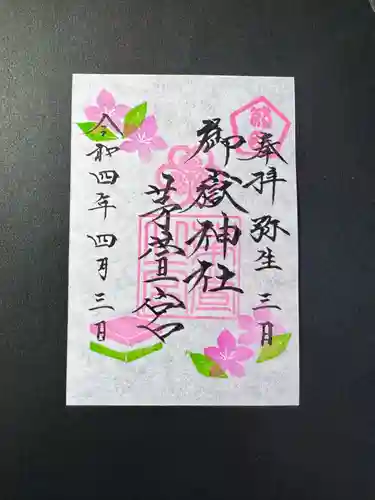 奉拝 弥生 三日
御嶽神社
茅萱宮
令和四年 四月 三日